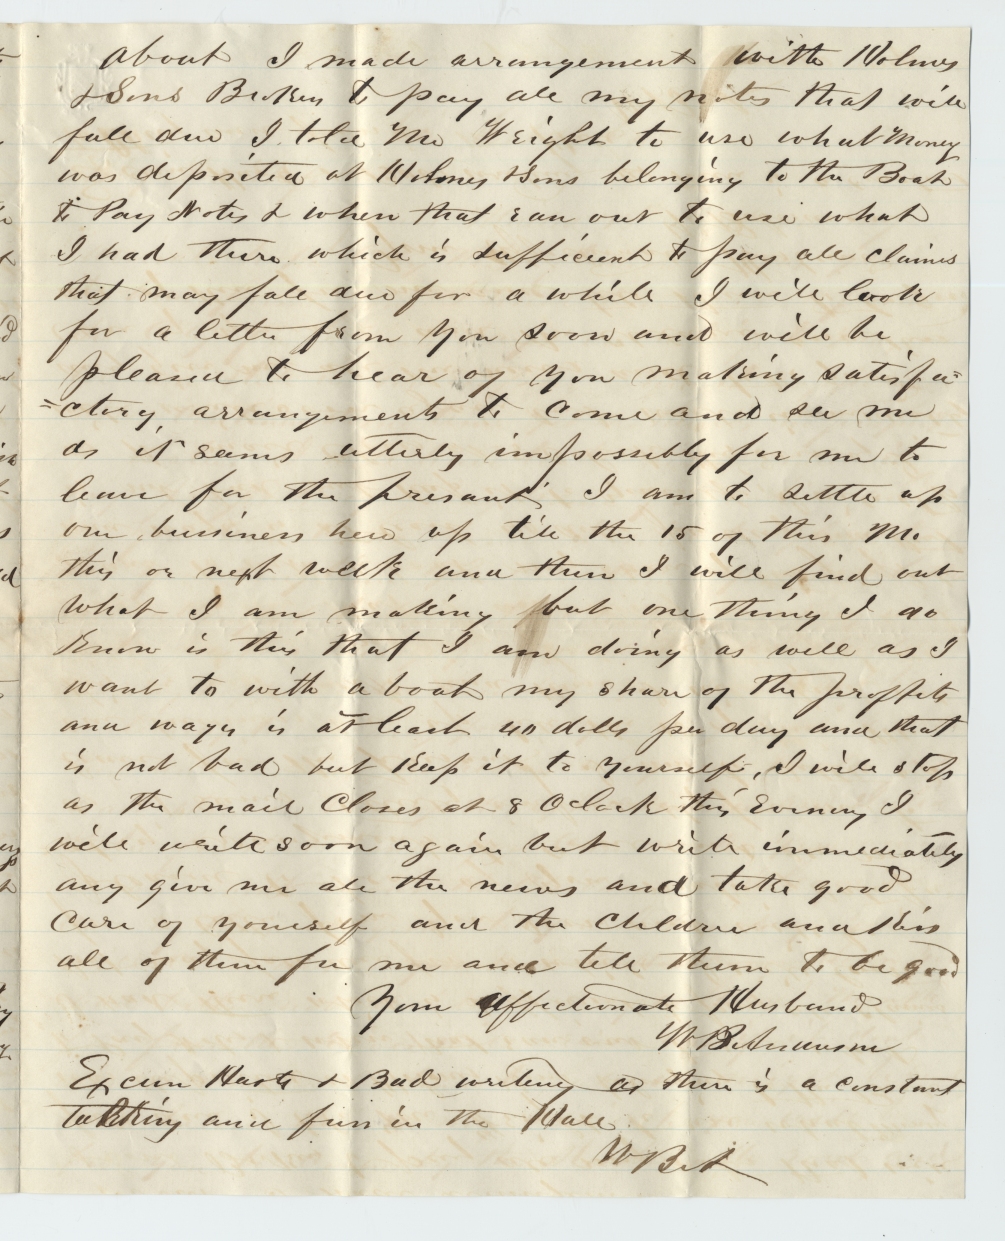 about I made arrangement with Holmes
& Sons Brokers to pay all my notes that will
fall due I told Mr Wright to use what Money
was deposited at Holmes & Sons belonging to the Boat
to Pay Notes & when that ran out to use what
I had there which is sufficient to pay all claims
that may fall due for a while I will look
for a letter from you soon and will be
pleased to hear of you making satisfa=
=ctory arrangements to come and see me
as it seams utterly impossibly for me to
leave for the presant I am to settle up
our bussiness here up till the 15 of this Mo
this or next week and then I will find out
what I am making but one thing I do
Know is this that I am doing as well as I
want to with a boat my share of the proffits
and wages is at least 40 dolls per day and that
is not bad but Keep it to yourself, I will stop
as the mail Closes at 8 Oclock this Evening I
will write soon again but write immediately
any give me all the news and take good
care of yourself and the Children and Kiss
all of them for me and tell them to be good
Your affectionate Husband
W B Anderson
Excuse Haste & Bad writing as there is a constant
talking and fuss in the Hall
W B A